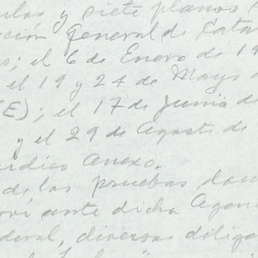 ulas y siete planos
ción General de Cata
s; el 6 de Enero de 19
el 19 y 24 de Mayo d
E); el 17 de Junio de
y el 29 de Agosto de
rídico anexo.
de las pruebas docu
ante dicha Agen
deral, diversas dilig